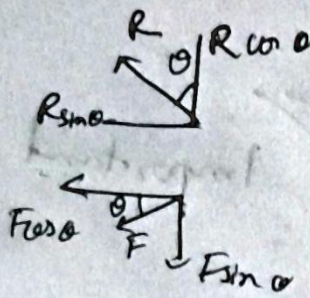 R
θ R cos θ
R sinθ
θ
F cos θ
F
F sin θ